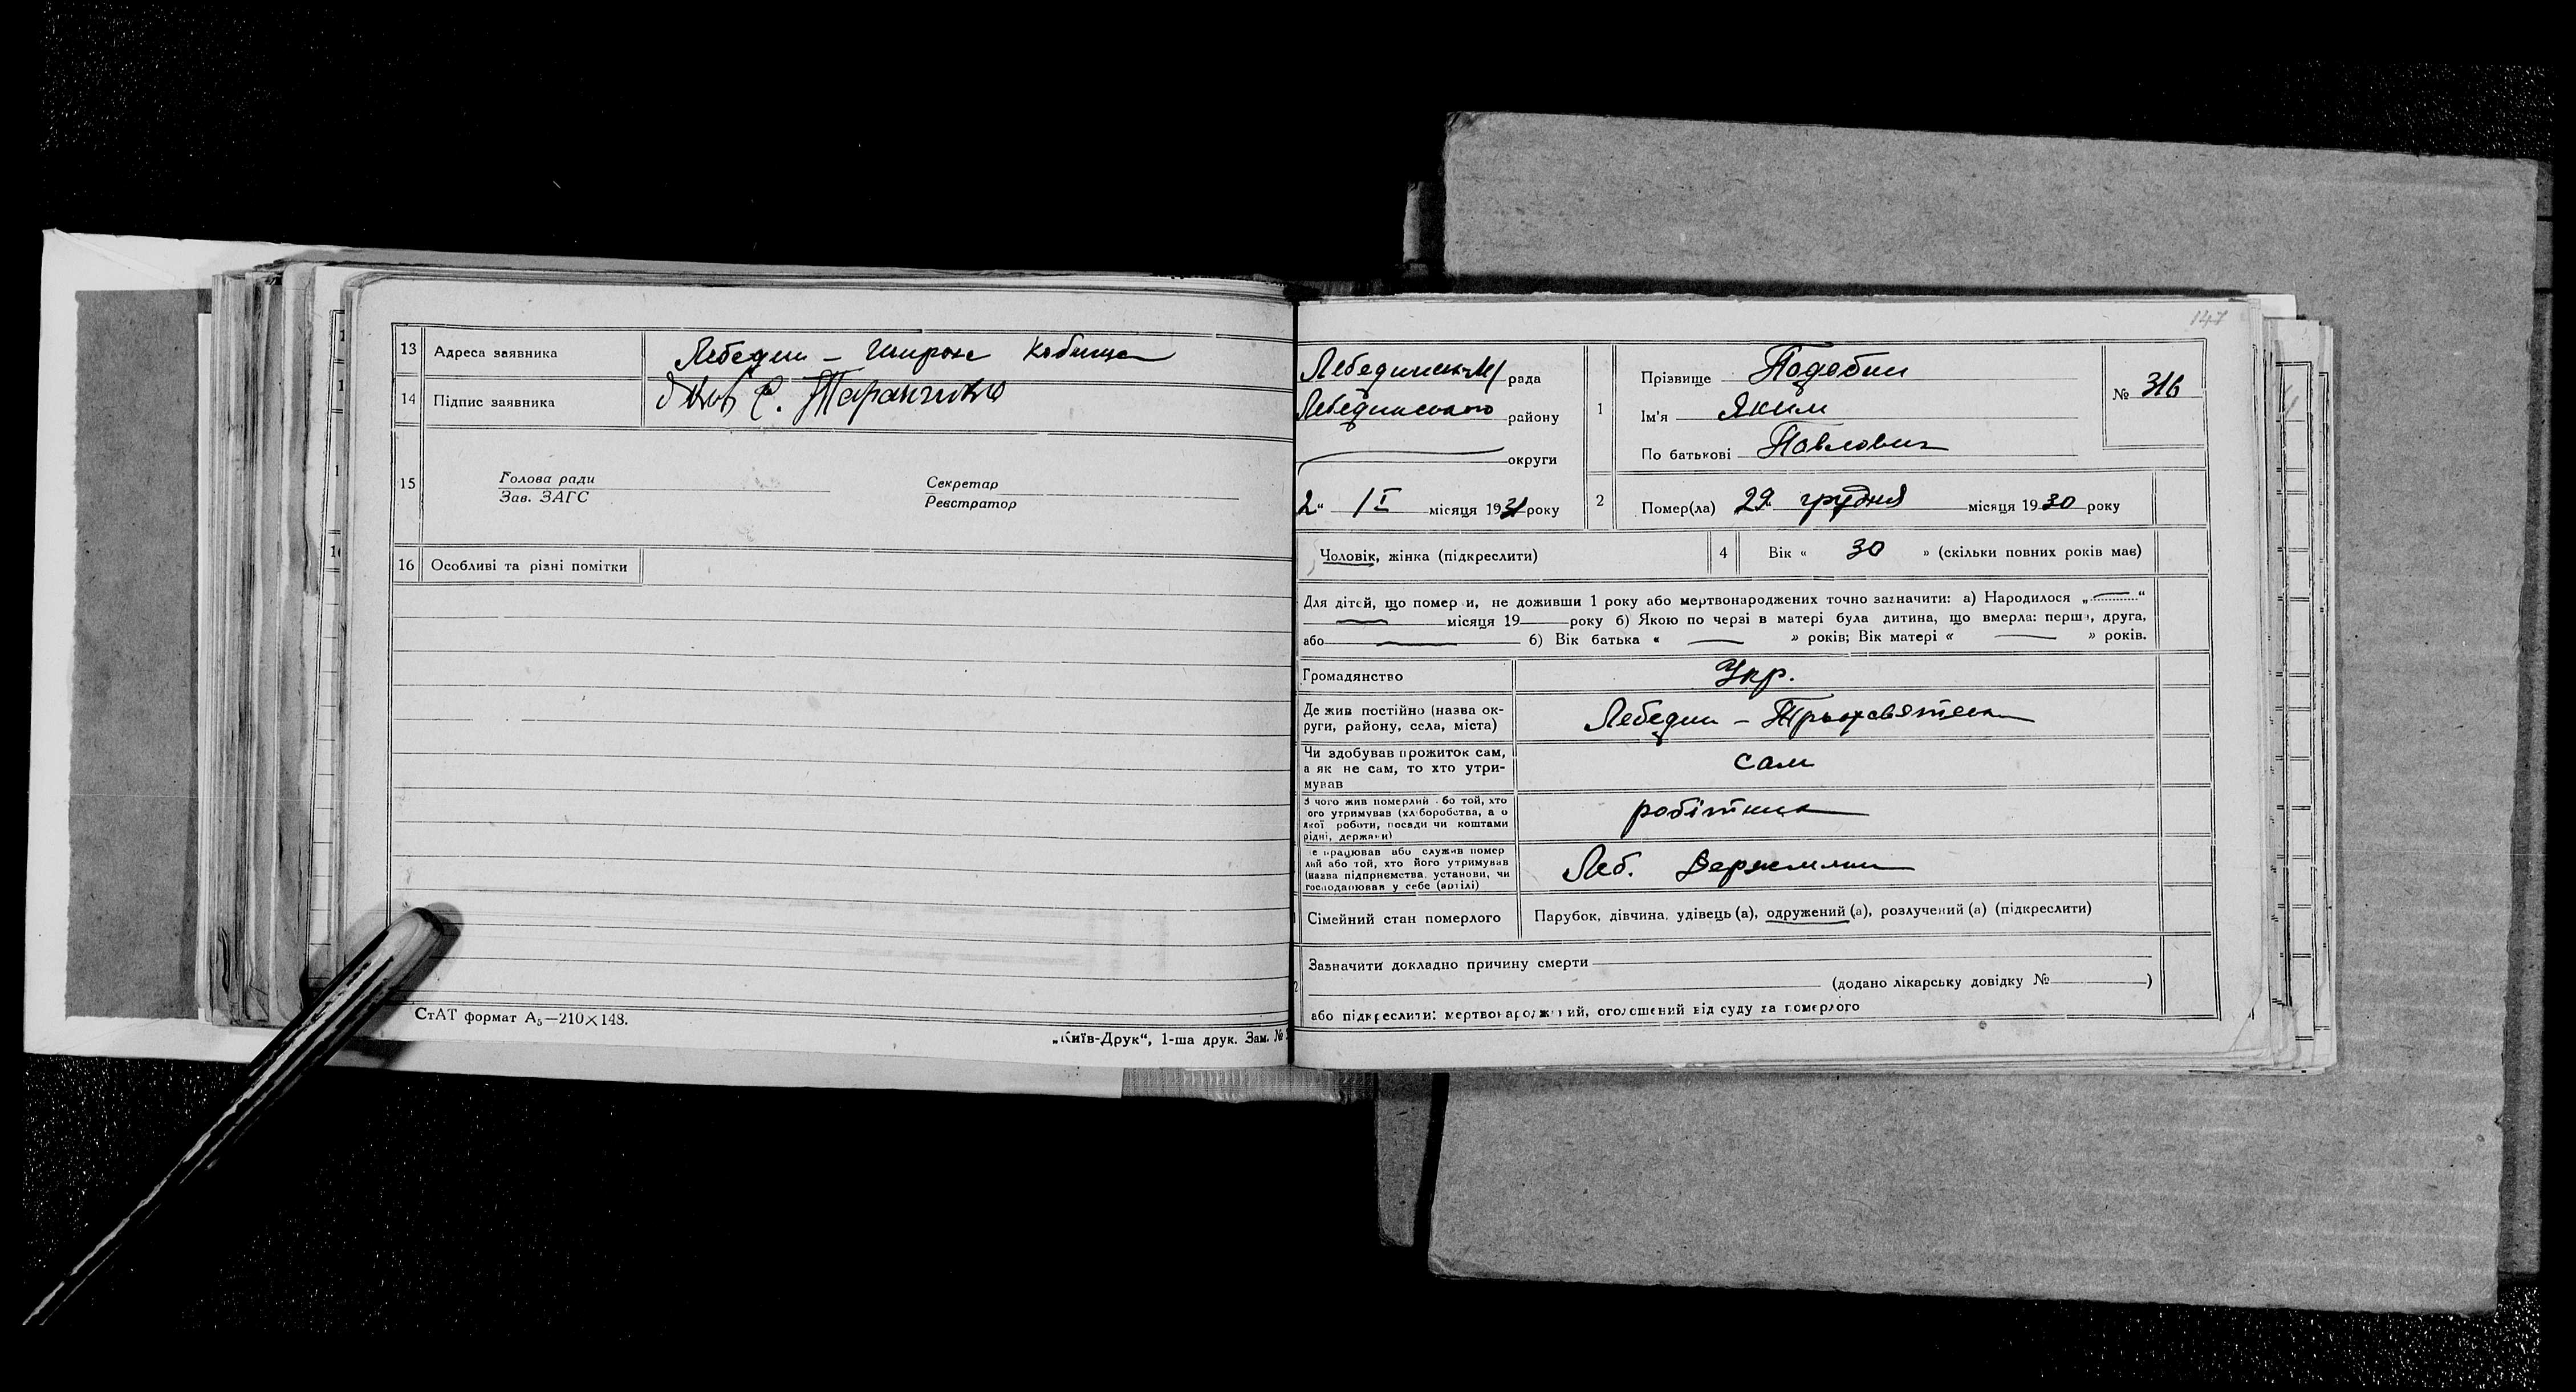 13 Адреса заявника Лебедин – Широке Кобище
14 Підпис заявника С. Таранченко
15 Голова ради
Зав. ЗАГС
Секретар
Реєстратор
16 Особливі та різні помітки
СтАТ формат А₅—210×148.
„Київ-Друк“, 1-ша друк. Зам. №
147
Лебединськ М/ рада
Лебединського району
округи
2“ /I місяця 1931 року
1 Прізвище Подобин
Ім'я Яким
По батькові Павлович
№ 316
2 Помер(ла) 29 грудня місяця 1930 року
Чоловік, жінка (підкреслити)
4 Вік « 30 » (скільки повних років має)
Для дітей, що помер и, не доживши 1 року або мертвонароджених точно зазначити: а) Народилося „ “
місяця 19 року б) Якою по черзі в матері була дитина, що вмерла: перша, друга,
або б) Вік батька « » років; Вік матері « » років.
Громадянство Укр.
Де жив постійно (назва ок-
руги, району, села, міста) Лебедин – Трьохсвятськ
Чи здобував прожиток сам,
а як не сам, то хто утри-
мував сам
З чого жив померлий бо той, хто
ого утримував (хліборобства, а о
якої роботи, посади чи коштами
рідні, держави) робітник
е працював або служив помер
лий або той, хто його утримував
(назва підприємства, установи, чи
господарював у себе (артілі) Леб. Держмлин
Сімейний стан померлого Парубок, дівчина, удівець (а), одружений (а), розлучений (а) (підкреслити)
Зазначити докладно причину смерти
(додано лікарську довідку № )
або підкреслити: мертвонароджений, оголошений від суду за померлого